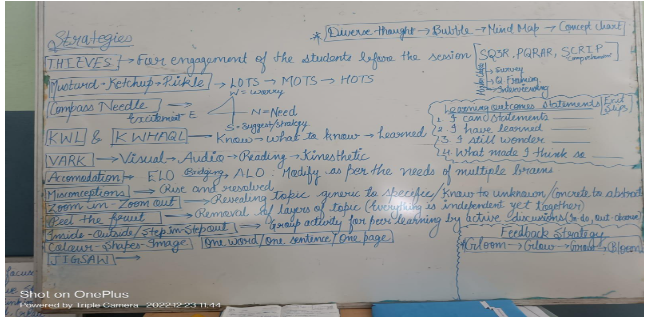 Strategies
* Diverse thought → Bubble → Mind Map → Concept chart
THIEVES → For engagement of the students before the session [SQ3R, PQRAR, SCRIP]
Comprehension
→ Survey
→ Q Framing
→ Interviewing
Mustard-Ketchup-Pickle → LOTS → MOTS → HOTS
W = Worry
Compass Needle →
Excitement = E
N = Need
S = Suggest/Strategy
KWL & KWHAQL → Know → What to know → Learned
VARK → Visual → Audio → Reading → Kinesthetic
Accomodation → ELO Bridging ALO. Modify as per the needs of multiple brains
Misconceptions → Rise and resolved
Zoom in - Zoom out → Revealing topic - generic to specific/Know to unknown/concrete to abstract
Peel the fruit → Removal of layers of topic (Everything is independent yet together)
Inside-Outside/Step in-Step out → Group activity for peer learning by active discussions
Colour-Shapes-Image One word/One sentence/One page
JIGSAW →
Learning outcomes statements
Exit Slips
1. I can statements
2. I have learned
3. I still wonder
4. What made I think so
Feedback Strategy
Gloom → Glow → Grow → Bloom
Shot on OnePlus
Powered by Triple Camera 2022.12.23 11:44